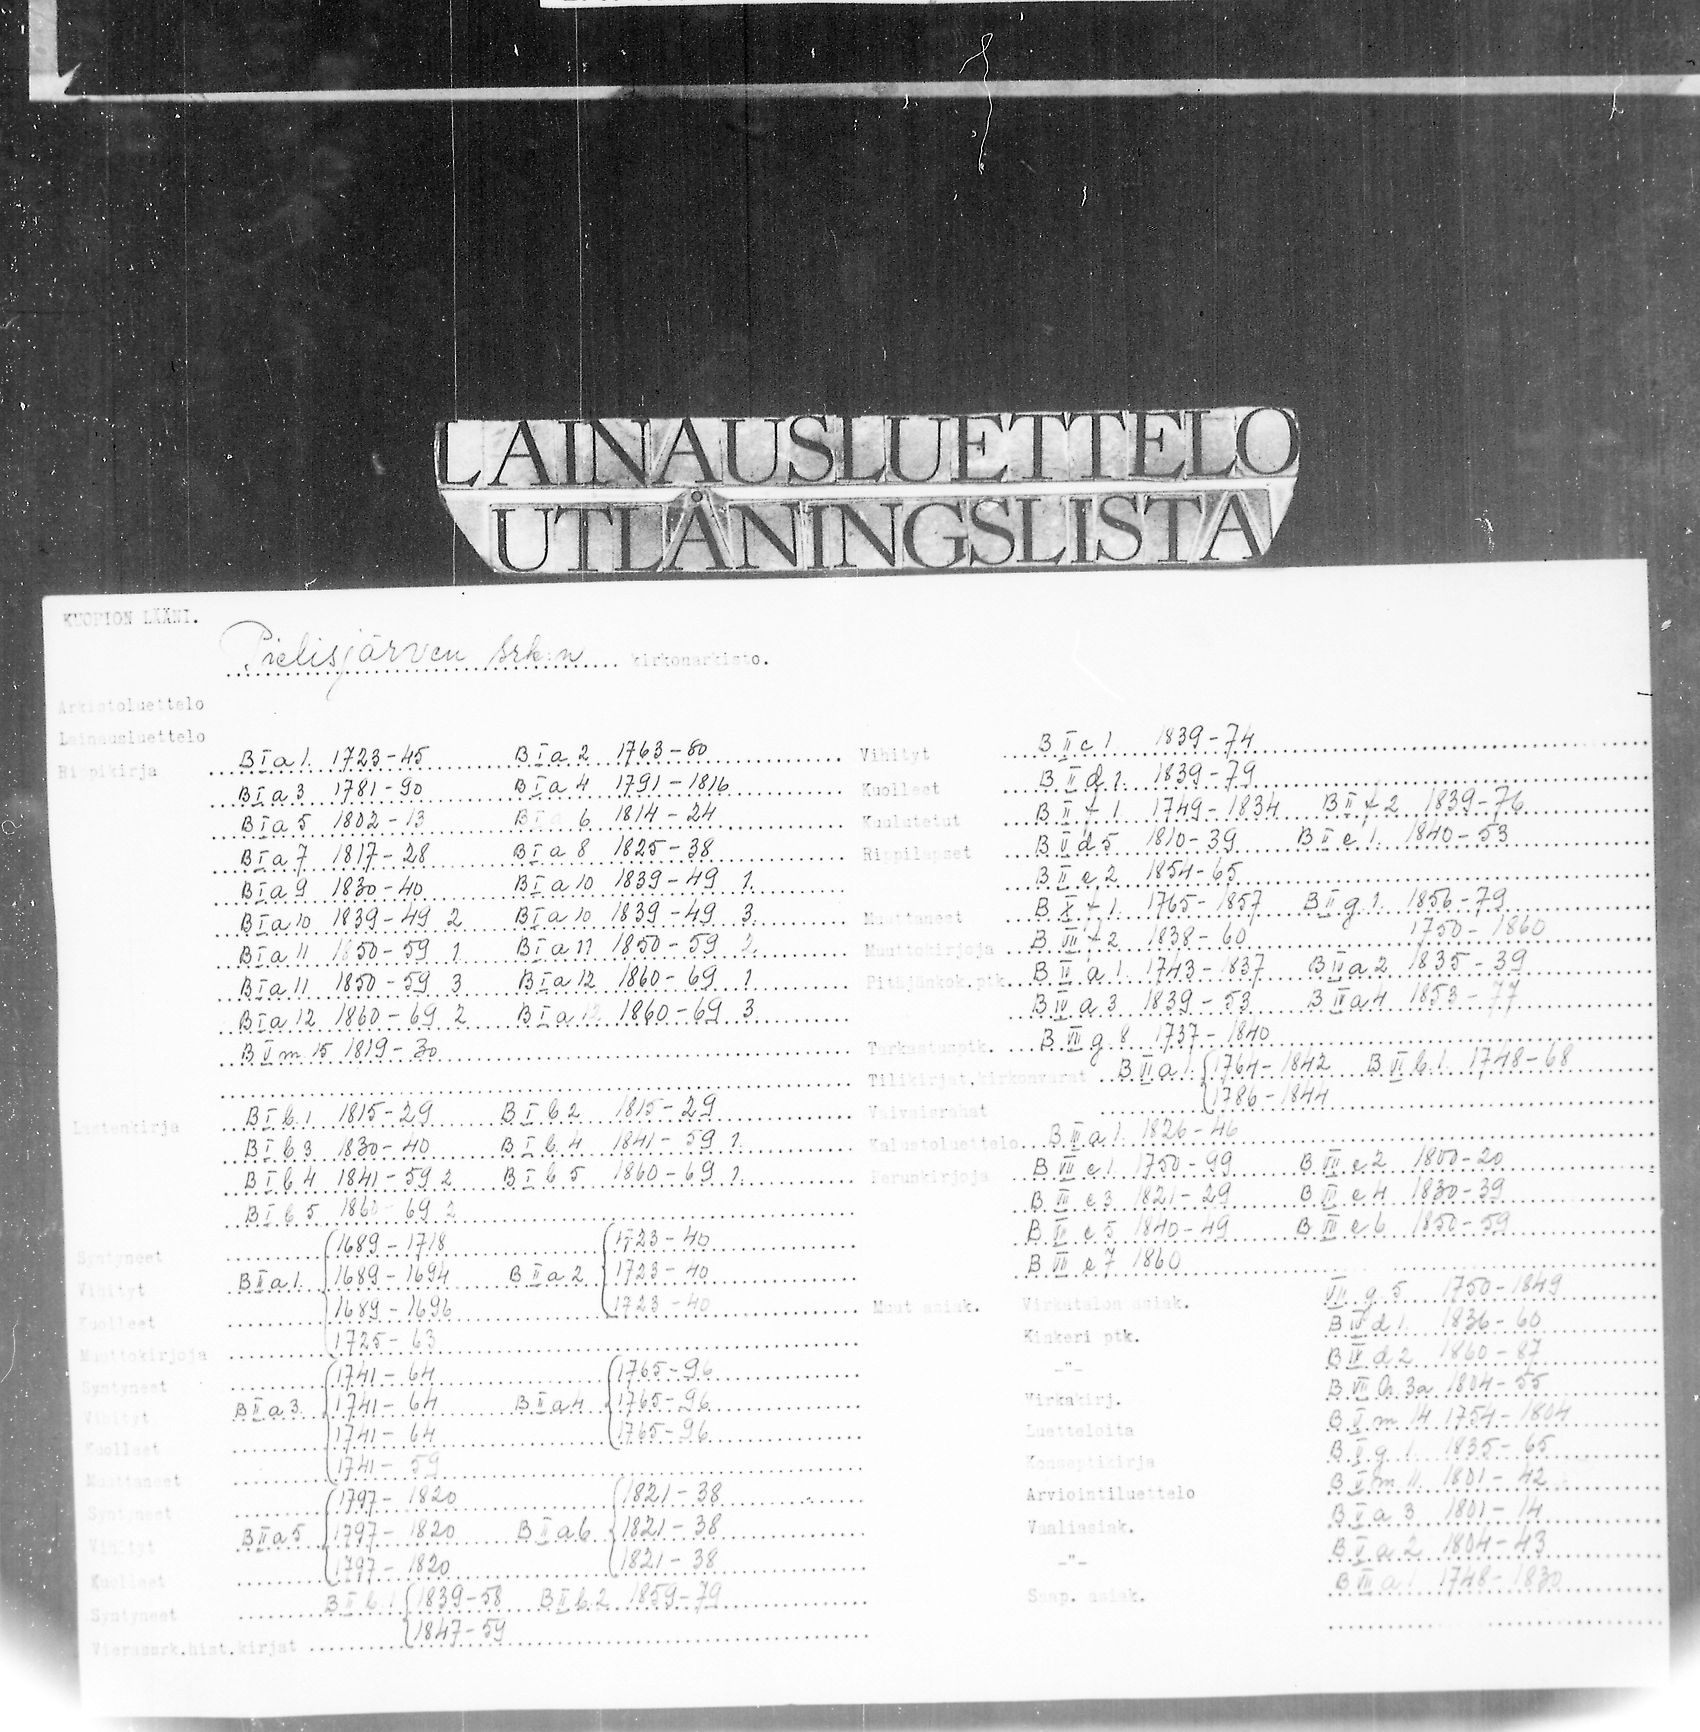 LAINAUSLUETTELO
UTLÅNINGSLISTA
KUOPION LÄÄNI.
Pielisjärven srk:n kirkonarkisto.
Arkistoluettelo
Lainausluettelo
Rippikirja B I a 1 1723-45 B I a 2 1763-80
B I a 3 1781-90 B I a 4 1791-1816
B I a 5 1802-13 B I a 6 1814-24
B I a 7 1817-28 B I a 8 1825-38
B I a 9 1830-40 B I a 10 1839-49 1
B I a 10 1839-49 2 B I a 10 1839-49 3
B I a 11 1850-59 1 B I a 11 1850-59 2
B I a 11 1850-59 3 B I a 12 1860-69 1
B I a 12 1860-69 2 B I a 12 1860-69 3
B V m 15 1819-30
Lastenkirja B I b 1 1815-29 B I b 2 1815-29
B I b 3 1830-40 B I b 4 1841-59 1
B I b 4 1841-59 2 B I b 5 1860-69 1
B I b 5 1860-69 2
Syntyneet 1689-1718 1723-40
Vihityt B II a 1 1689-1694 B II a 2 1723-40
Kuolleet 1689-1696 1723-40
Muuttokirjoja 1725-63
Syntyneet 1741-64 1765-96
Vihityt B II a 3 1741-64 B II a 4 1765-96
Kuolleet 1741-64 1765-96
Muuttaneet 1741-59
Syntyneet 1797-1820 1821-38
Vihityt B II a 5 1797-1820 B II a 6 1821-38
Kuolleet 1797-1820 1821-38
Syntyneet B II b 1 1839-58 B II b 2 1859-79
Vierassrk.hist.kirjat 1847-59
Vihityt B II c 1 1839-74
Kuolleet B II d 1 1839-79
Kuulutetut B II f 1 1749-1834 B II f 2 1839-76
Rippilapset B V d 5 1810-39 B II e 1 1840-53
B II e 2 1854-65
Muuttaneet 1765-1857 B II g 1 1856-79
Muuttokirjoja B VII f 2 1838-60 1750-1860
Pitäjänkok.ptk. a 1 1743-1837 a 2 1835-39
B IV a 3 1839-53 a 4 1853-77
Tarkastusptk. B VII g 8 1737-1840
Tilikirjat,kirkonvarat B VI a 1 1764-1842 B VI b 1 1748-68
Vaivaisrahat 1786-1844
Kalustoluettelo B III a 1 1826-46
Perunkirjoja B VII e 1 1750-99 B VII e 2 1800-20
B VII e 3 1821-29 B VII e 4 1830-39
B VII e 5 1840-49 B VII e 6 1850-59
B VII e 7 1860
Muut asiak. Virkatalon asiak. VII g 5 1750-1849
Kinkeri ptk. B IV d 1 1836-60
-"- B IV d 2 1860-87
Virkakirj. B VII h 3a 1804-55
Luetteloita B V m 14 1754-1804
Konseptikirja B V g 1 1835-65
Arviointiluettelo B V m 11 1801-42
Vaaliasiak. B V a 3 1801-14
-"- B V a 2 1804-43
Saap. asiak. B VII a 1 1748-1830